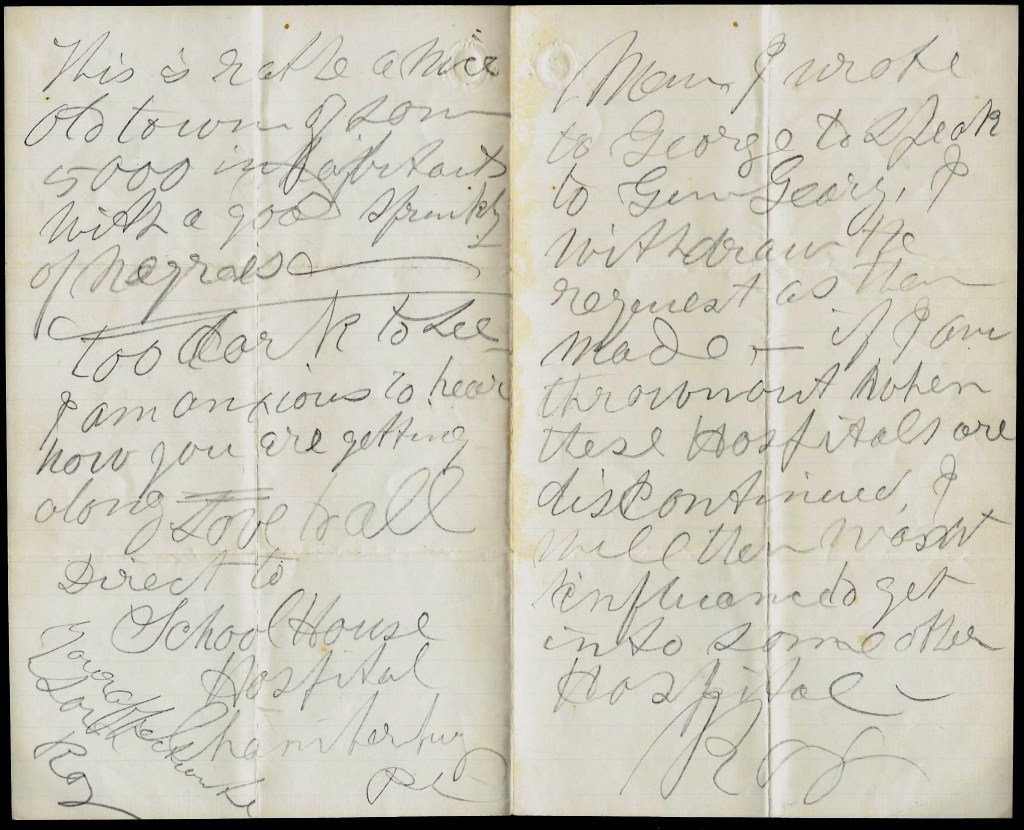 This is rathe a nice
old town of som
5000 inhabitants
with a good sprinkly
of negroes
Too dark to see
I am anxious to hear
how you are getting
along Love to all
Direct to
School House
Hospital
Chamberburg
Pa
Your affectionate
Son
Roy
Mam I wrote
to George to speak
to Gen Geary, I
withdraw the
request as then
made — if I am
thrown out when
these Hospitals are
discontinued, I
will then want
influence to get
into some other
Hospital —
Roy